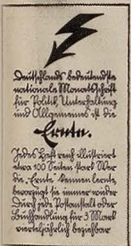 Deutschlands bedeutendste
nationale Monatsschrift
für Politik, Unterhaltung
und Allgemeines ist die
Ernte.
Jedes Heft reich illustriert
etwa 100 Seiten stark. Wer
die „Ernte“ kennen lernte,
bevorzugt sie immer wieder
Durch jede Postanstalt oder
Buchhandlung für 3 Mark
vierteljährlich beziehbar